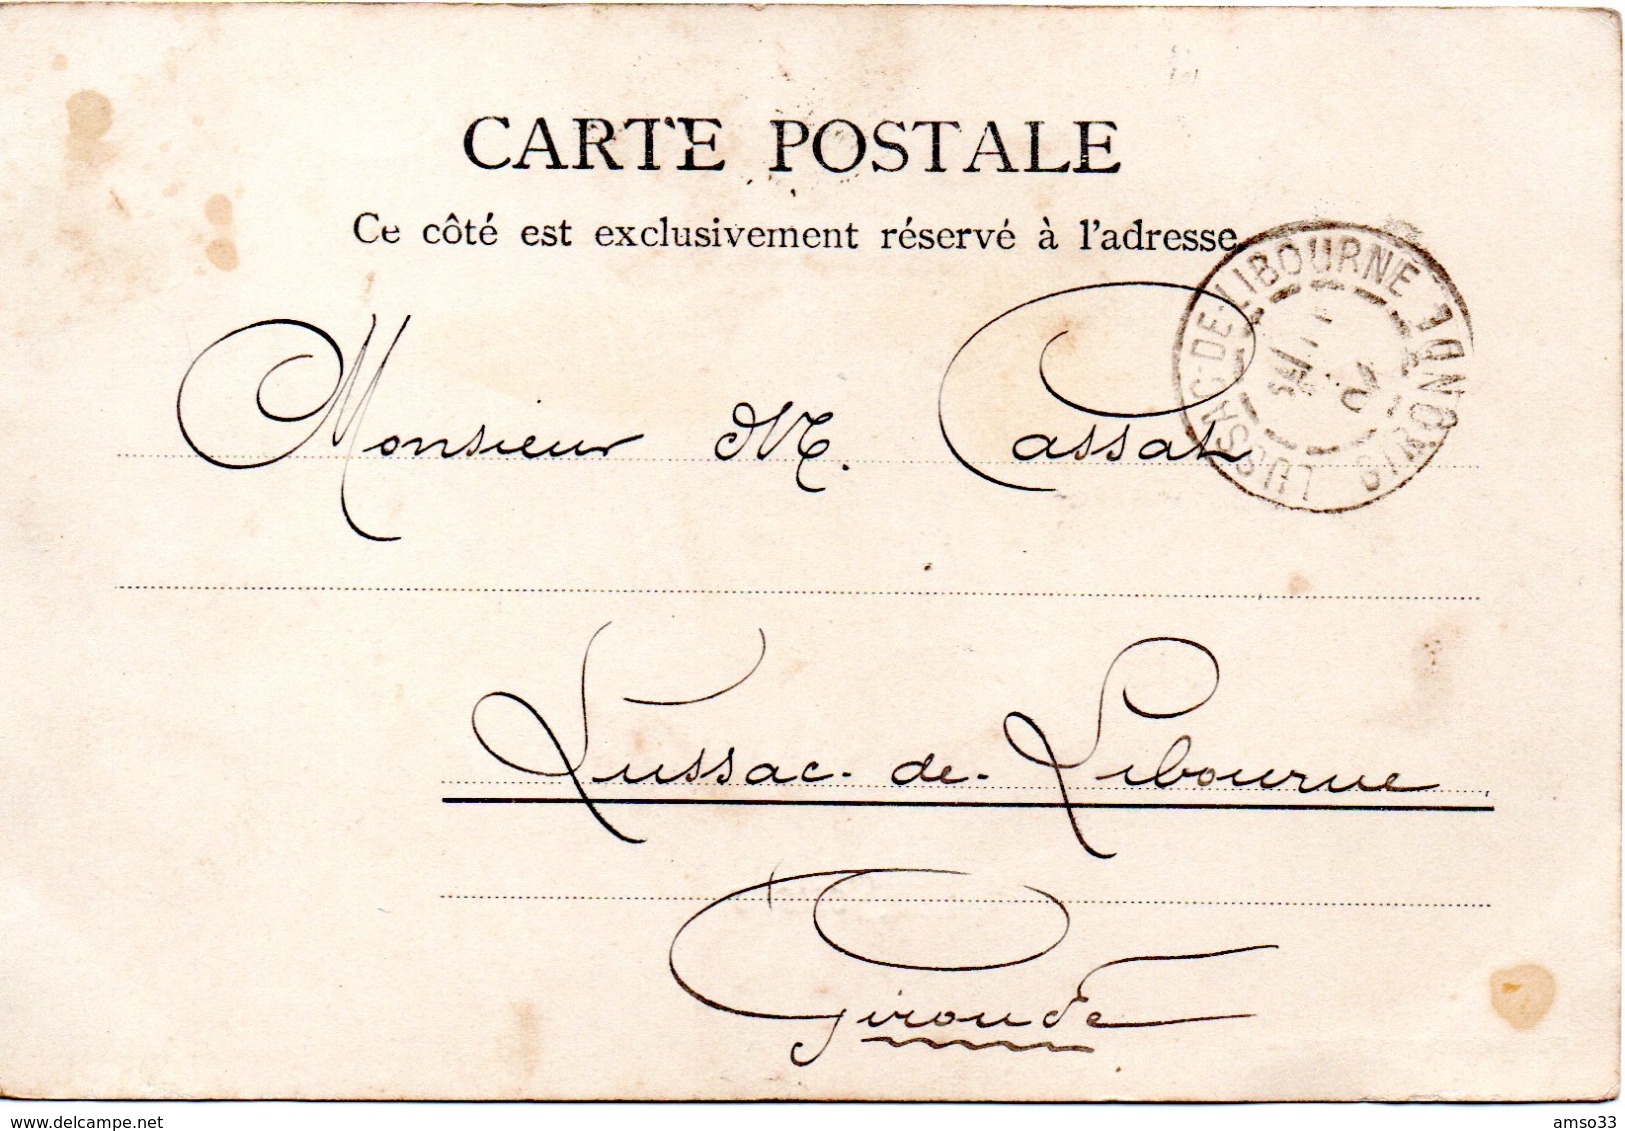 CARTE POSTALE
Ce côté est exclusivement réservé à l'adresse
LUSSAC-DE-LIBOURNE GIRONDE
Monsieur M. Cassat
Lussac-de-Libourne
Gironde
www.delcampe.net
amso33